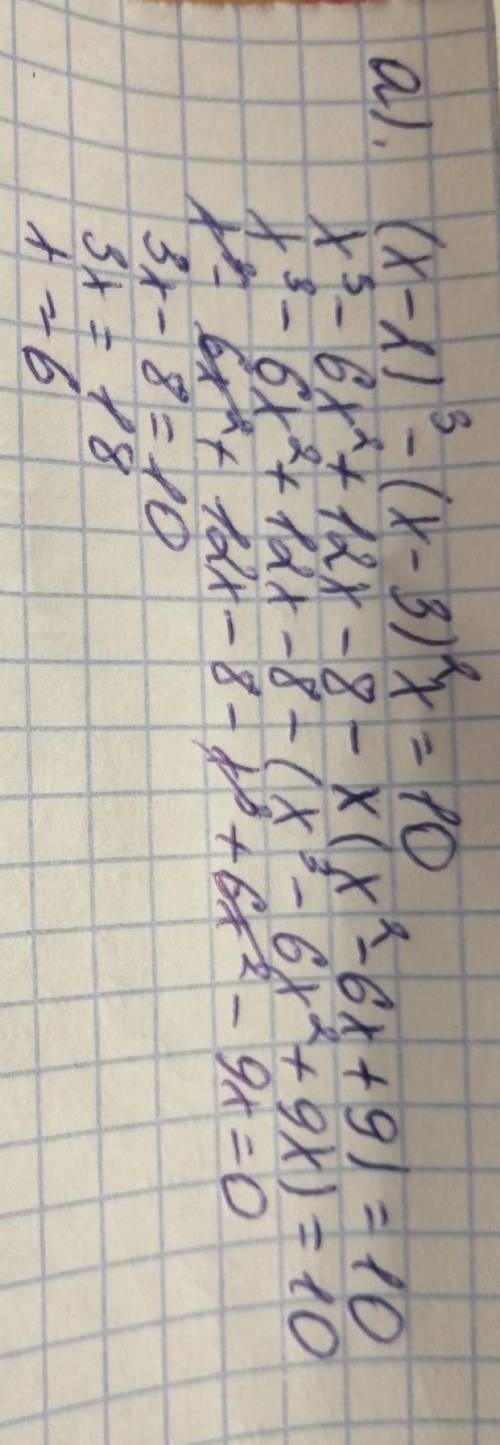 а). (x-2)³-(x-3)²x=10
x³-6x²+12x-8-x(x²-6x+9)=10
x³-6x²+12x-8-(x³-6x²+9x)=10
x³-6x²+12x-8-x³+6x²-9x=0
3x-8=10
3x=18
x=6